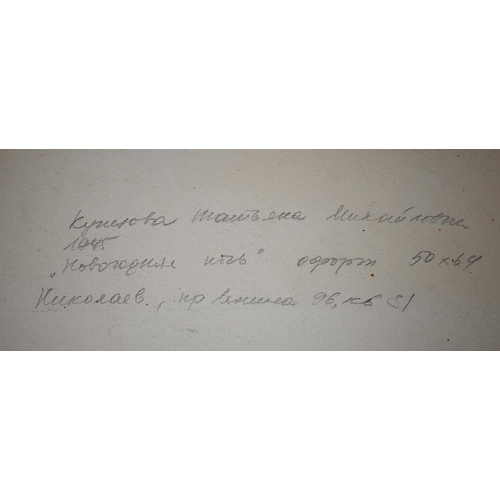 Татьяна Михайловна
1945
„Новогодняя ночь" офорт 50х64
Николаев, пр Ленина 96, кв 81